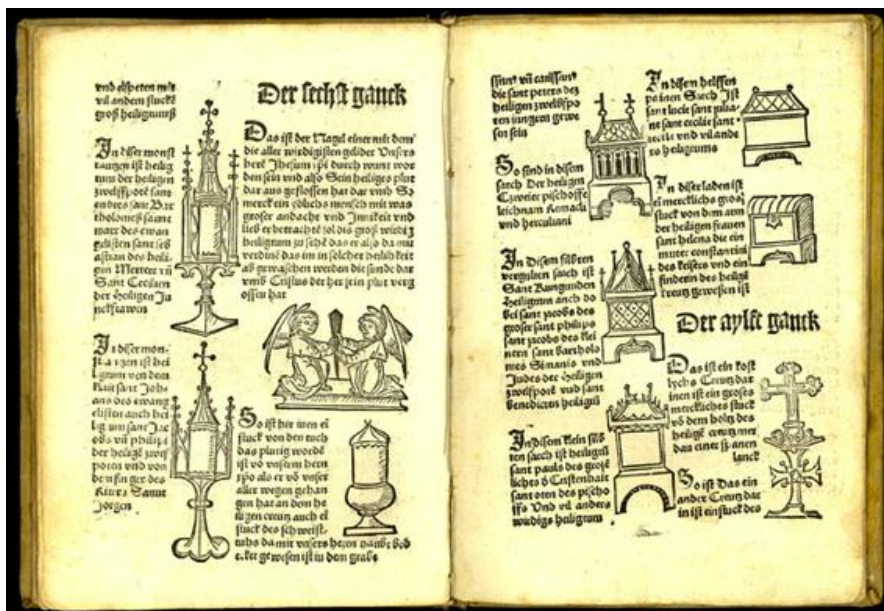 vnd elsheten mit
vil andern stuckē
groß heiligtumß
In diser monst
rantzen ist heilig
tum der heiligen
zwelffpotē sant
endres sant Bar
tholomeß sannt
marx des ewan
gelisten sant seb
astian des heili
gen Mertere vn̄
Sant Cecilaen
der heiligen Ju
nckfrawen
In diser mon-
ist hei
ligtum von dem
klait sant Joh-
ans des ewang
elisten auch hei
lig tum sant Jac
obs vn̄ philippi
der heiligē zwelf
poten vnd von
dem finger des
Ritters Sannt
Jorgen
Der sechst ganck
Das ist der Nagel einer mit dem
die aller wirdigisten gelider Vnsers
herē Jhesum xp̄i durch wunt wor
den sein vnd also Sein heiliges plut
dar aus geflossen hat dar vmb So
merck ein ydlichs mensch mit was
groser andacht vnd Jnnikeit vnd
lieb er betrachtē sol dis groß wirdig
heiligtum zu sehē das er also da mit
verdinē das im in solcher heilickeit
ab gewaschen werden die sunde dar
vmb Cristus der her sein plut verg
ossen hat
So ist hir inen ei
stuck von den tuch
das plutig wordē
ist vō vnserm hern
xp̄o als er vō vnser
aller wegen gehan
gen hat an dem he
iligen creutz auch ei
stuck des schweist
tuchs da mit vnsers heren haubt bed
ecket gewesen ist in dem grabe
die sant peters des
heiligen zwelfpo
ten iungern gewe
sen sein
So sind in disem
sarch Der heiligen
Czweier pischoffe
leichnam Romadi
vnd herculiani
In Disem silbren
vergulten sarch ist
Sant Kungunden
heiligtum auch do
bei sant jacobs des
groser sant philips
sant jacobs des klei
nern sant bartholo
mes Simonis vnd
Judes der heiligen
zwelfpotē vnd sant
benedicten heiligtū
In disem klein silb
ren sarch ist heiligtū
sant pauls des grosē
lichtes d Cristenhait
sant oten des pischo
ffs Vnd vil anders
wirdigs heiligtum
In disem helffen
painen Sarch Ist
sant lucie sant julia-
ne sant cecilie sant
vnd vil ande
rs heiligtums
In diser laden ist
ei mercklichs gros
stuck von dem arm
der heiligen frauen
sant helena die ein
muter constantini
des keisers vnd ein
finderin des heiligē
kreutz gewesen ist
Der aylfft ganck
Das ist ein kost
lychs Creutz dar
inen ist ein groses
merckliches stuck
vō dem holtz des
heiligē creutz mer
dan einer spanen
lanck
So ist Das ein
ander Creutz dar
in ist ein stuck des